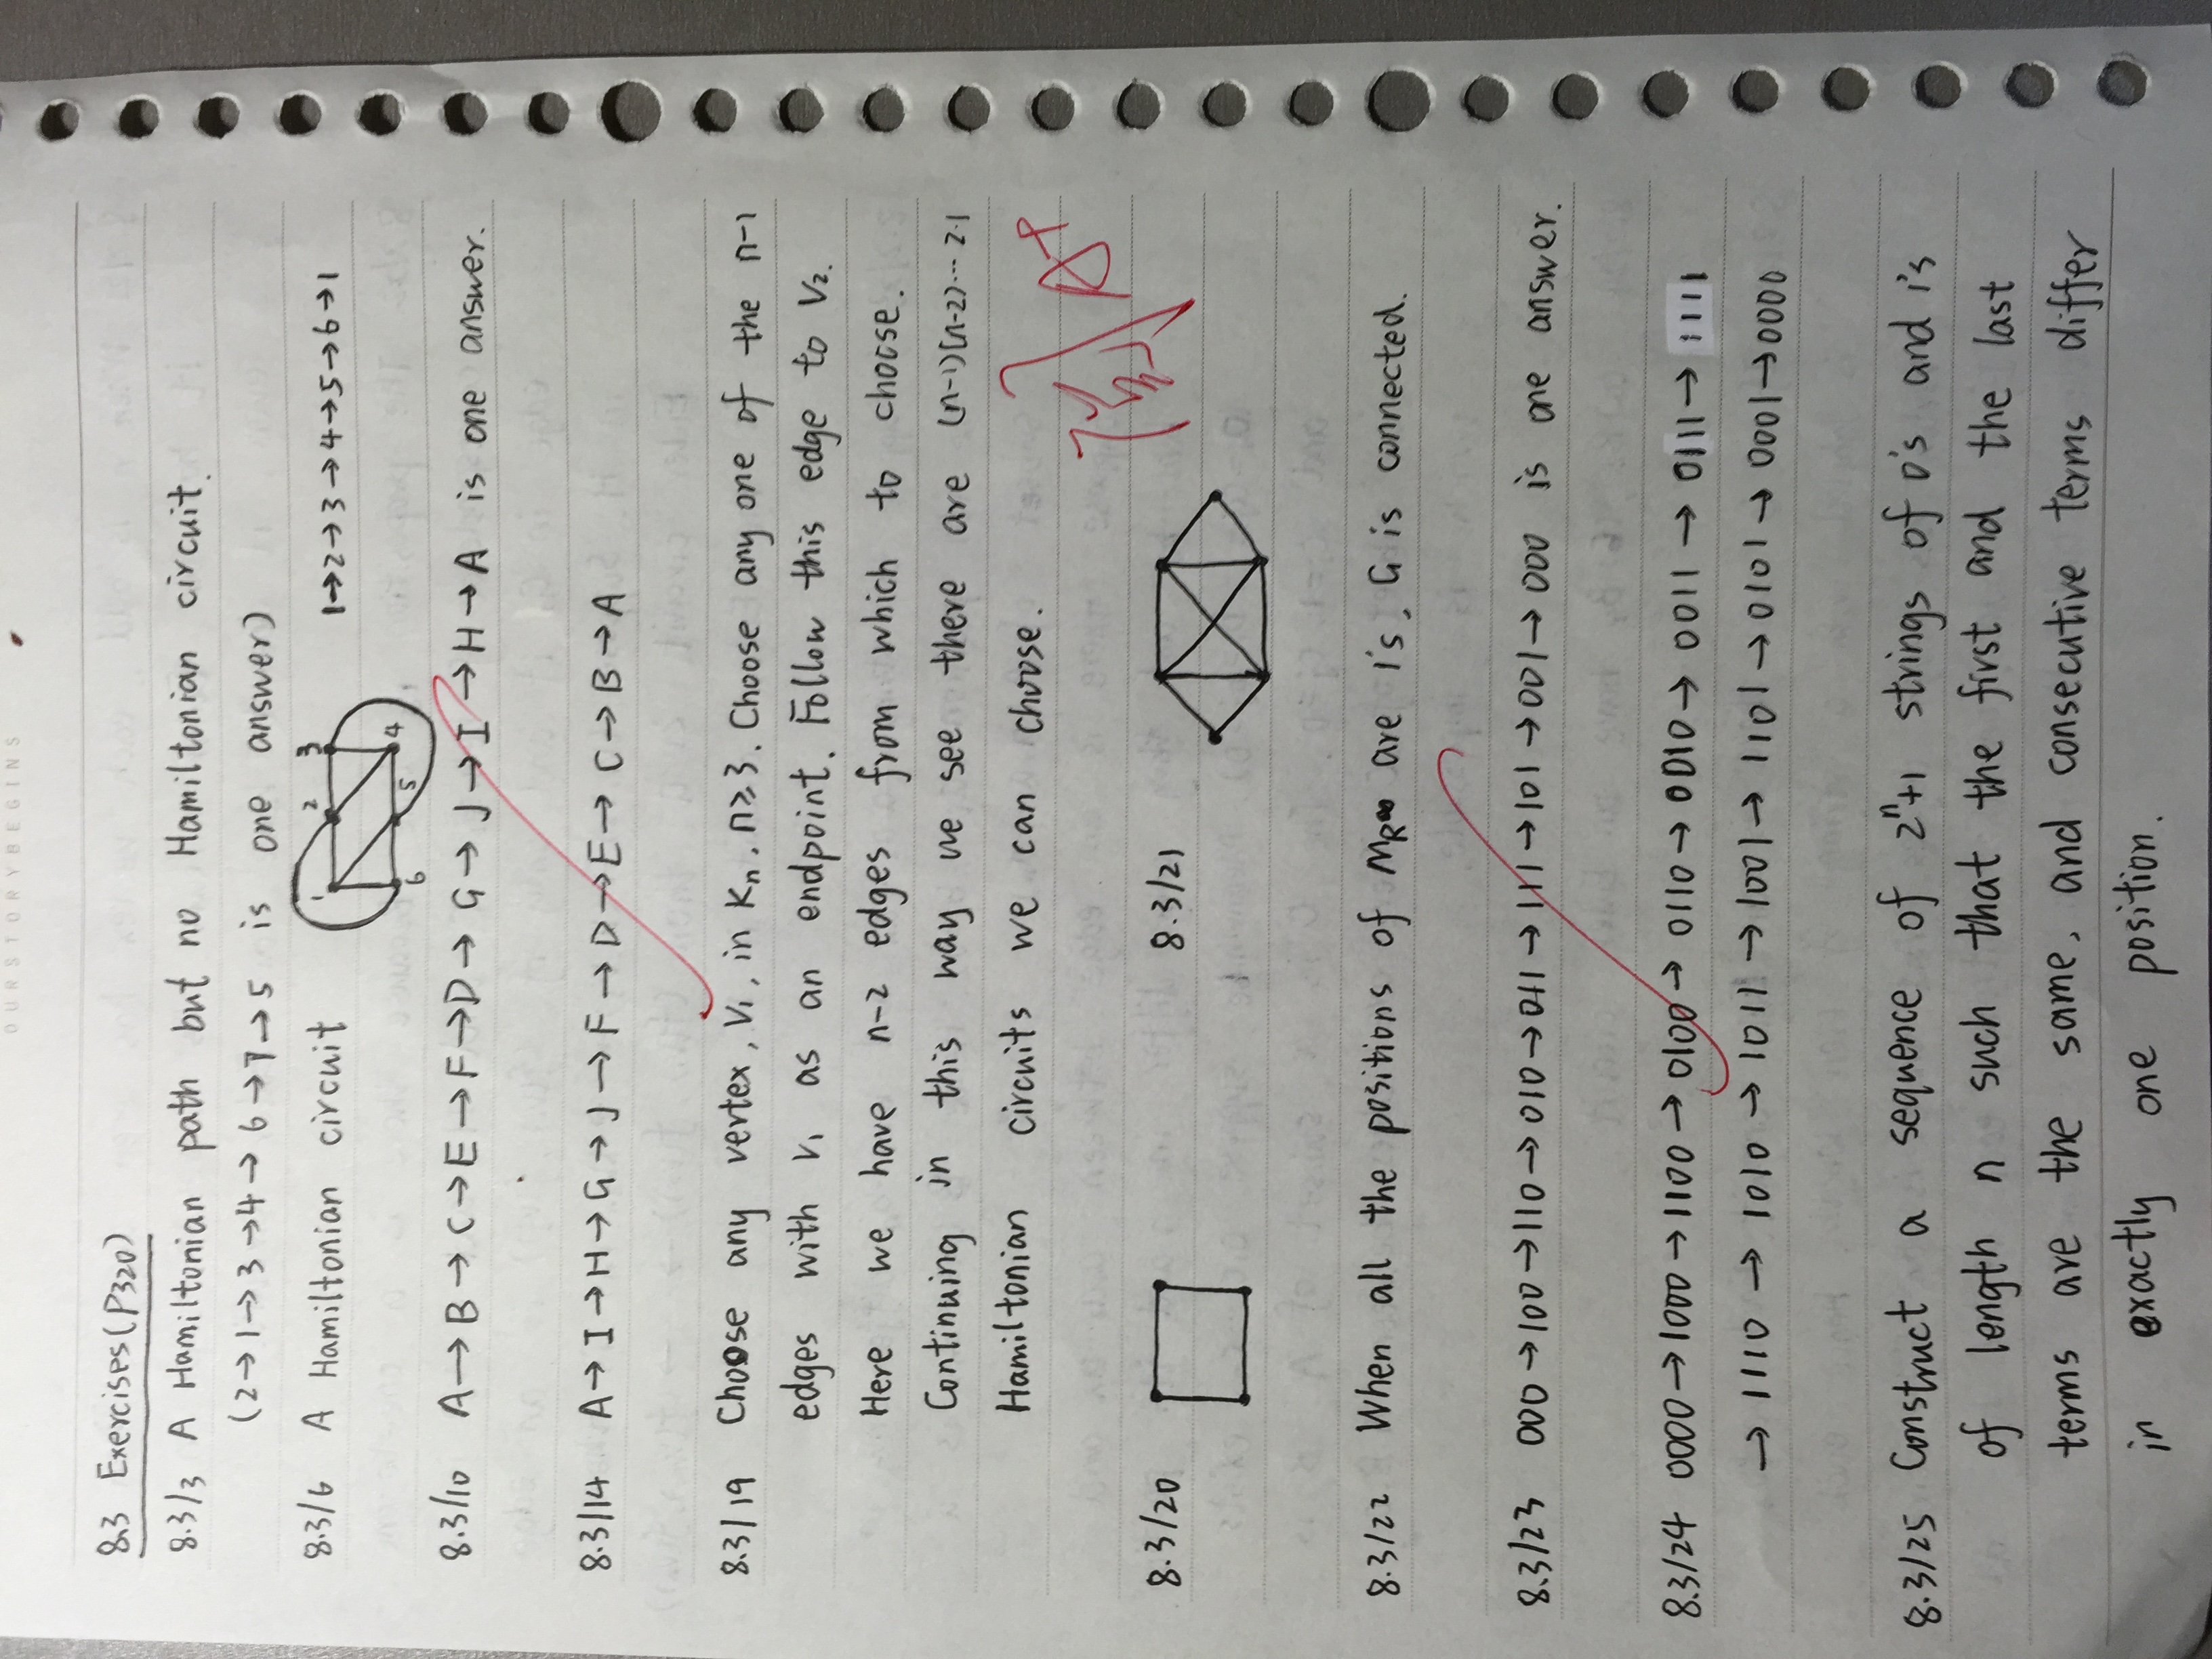 OURSTORYBEGINS
8.3 Exercises (P320)
8.3/3 A Hamiltonian path but no Hamiltonian circuit.
(2→1→3→4→6→7→5 is one answer)
8.3/6 A Hamiltonian circuit 1 2 3 4 5 6 1→2→3→4→5→6→1
8.3/10 A→B→C→E→F→D→G→J→I→H→A is one answer.
8.3/14 A→I→H→G→J→F→D→E→C→B→A
8.3/19 Choose any vertex, V₁, in Kn, n≥3. Choose any one of the n-1
edges with V₁ as an endpoint. Follow this edge to V₂.
Here we have n-2 edges from which to choose.
Continuing in this way we see there are (n-1)(n-2)...2·1
Hamiltonian circuits we can choose.
A+
8.3/20 8.3/21
8.3/22 When all the positions of MR∞ are 1's, G is connected.
8.3/23 000→100→110→010→011→111→101→001→000 is one answer.
8.3/24 0000→1000→1100→0100→0110→0010→0011→0111→1111
→1110→1010→1011→1001→1101→0101→0001→0000
8.3/25 Construct a sequence of 2ⁿ+1 strings of 0's and 1's
of length n such that the first and the last
terms are the same, and consecutive terms differ
in exactly one position.